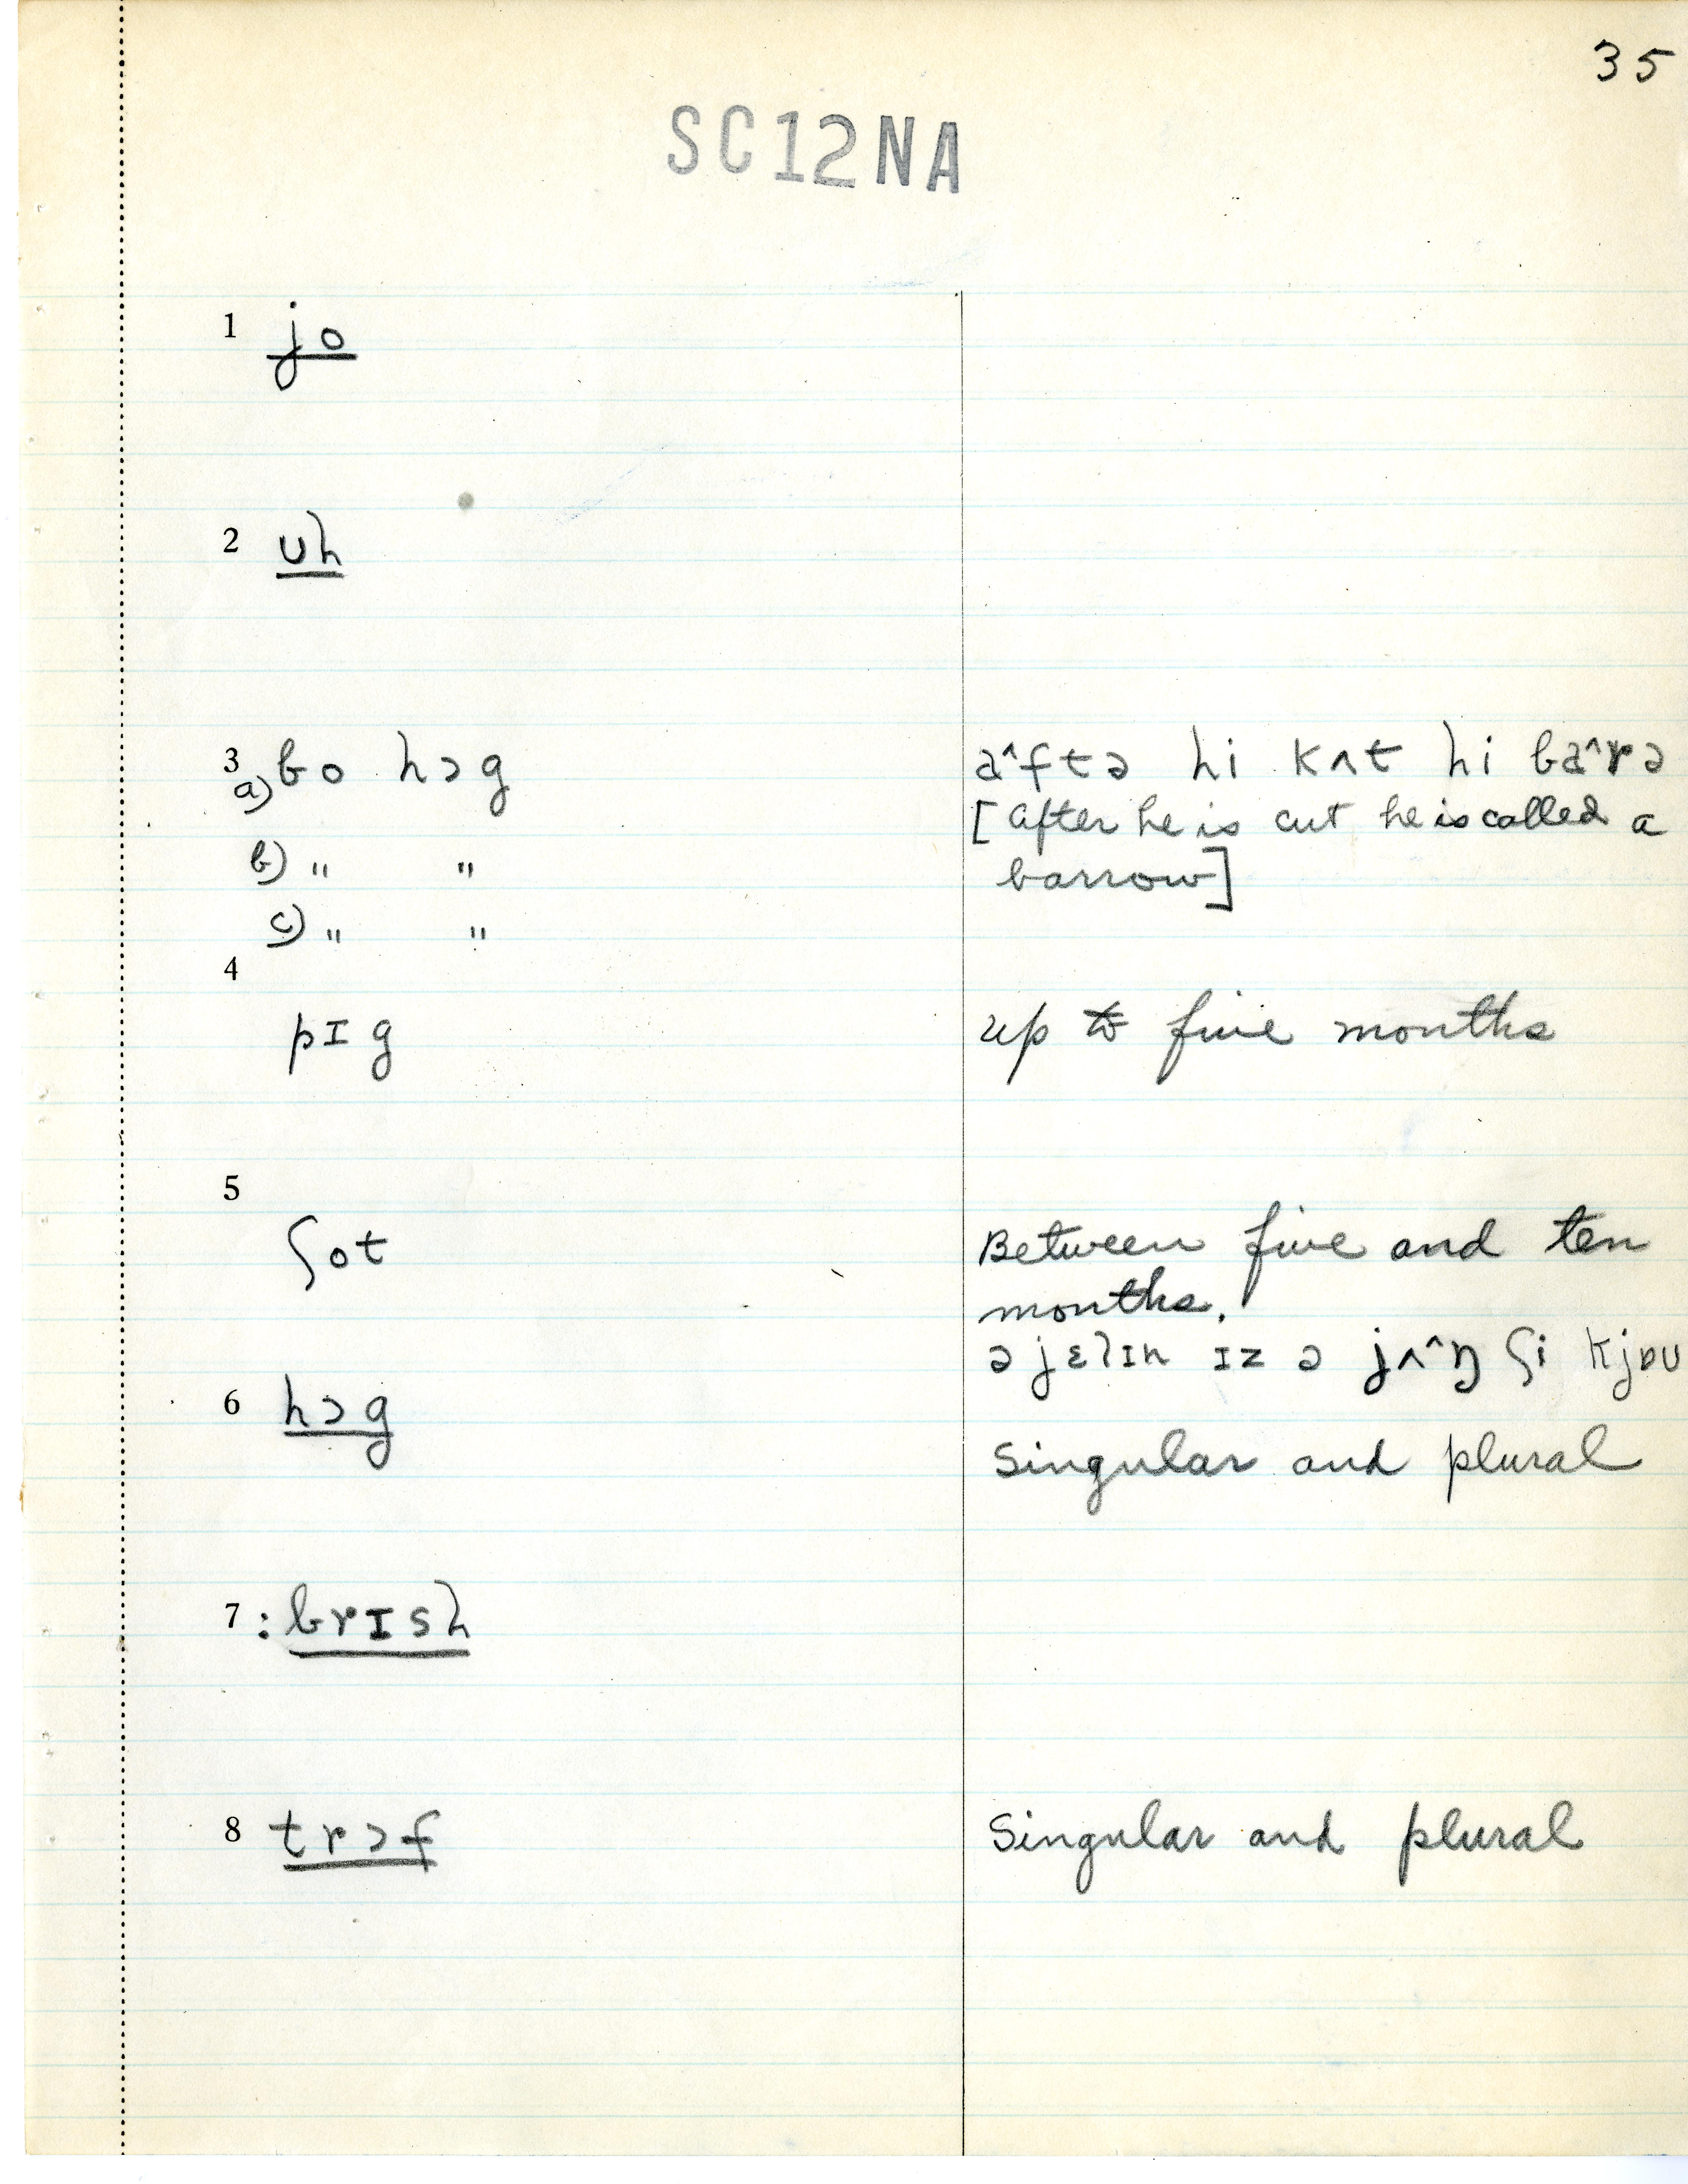 35
SC12NA
1 jo
2 ʊh
3 a) bo hɔg
a^ftə hi kʌt hi ba^rə
[after he is cut he is called a
b) " "
barrow]
c) " "
4
pɪg
up to five months
5
ʃot
Between five and ten
months.
ə jɛlɪn ɪz ə jʌ^ŋ ʃi kjɒu
6 hɔg
Singular and plural
7 : brɪsh
8 trɔf
Singular and plural